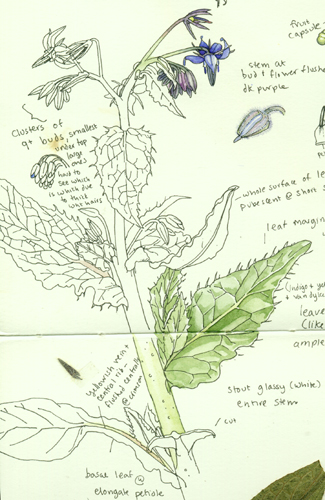 fruit
capsule
stem at
bud + flower flushed
dk purple
Clusters of
9+ buds, smallest
under top
large
ones
hard to
see which
is which due
to thick
wht hairs
whole surface of le
pubescent @ short s
leaf margin
(indigo + ye
+ vandyke
leave
(like
ample
yellowish vein +
central rib -
flushed centrally
@ crimson
stout glassy (white)
entire stem
cut
basal leaf @
elongate petiole